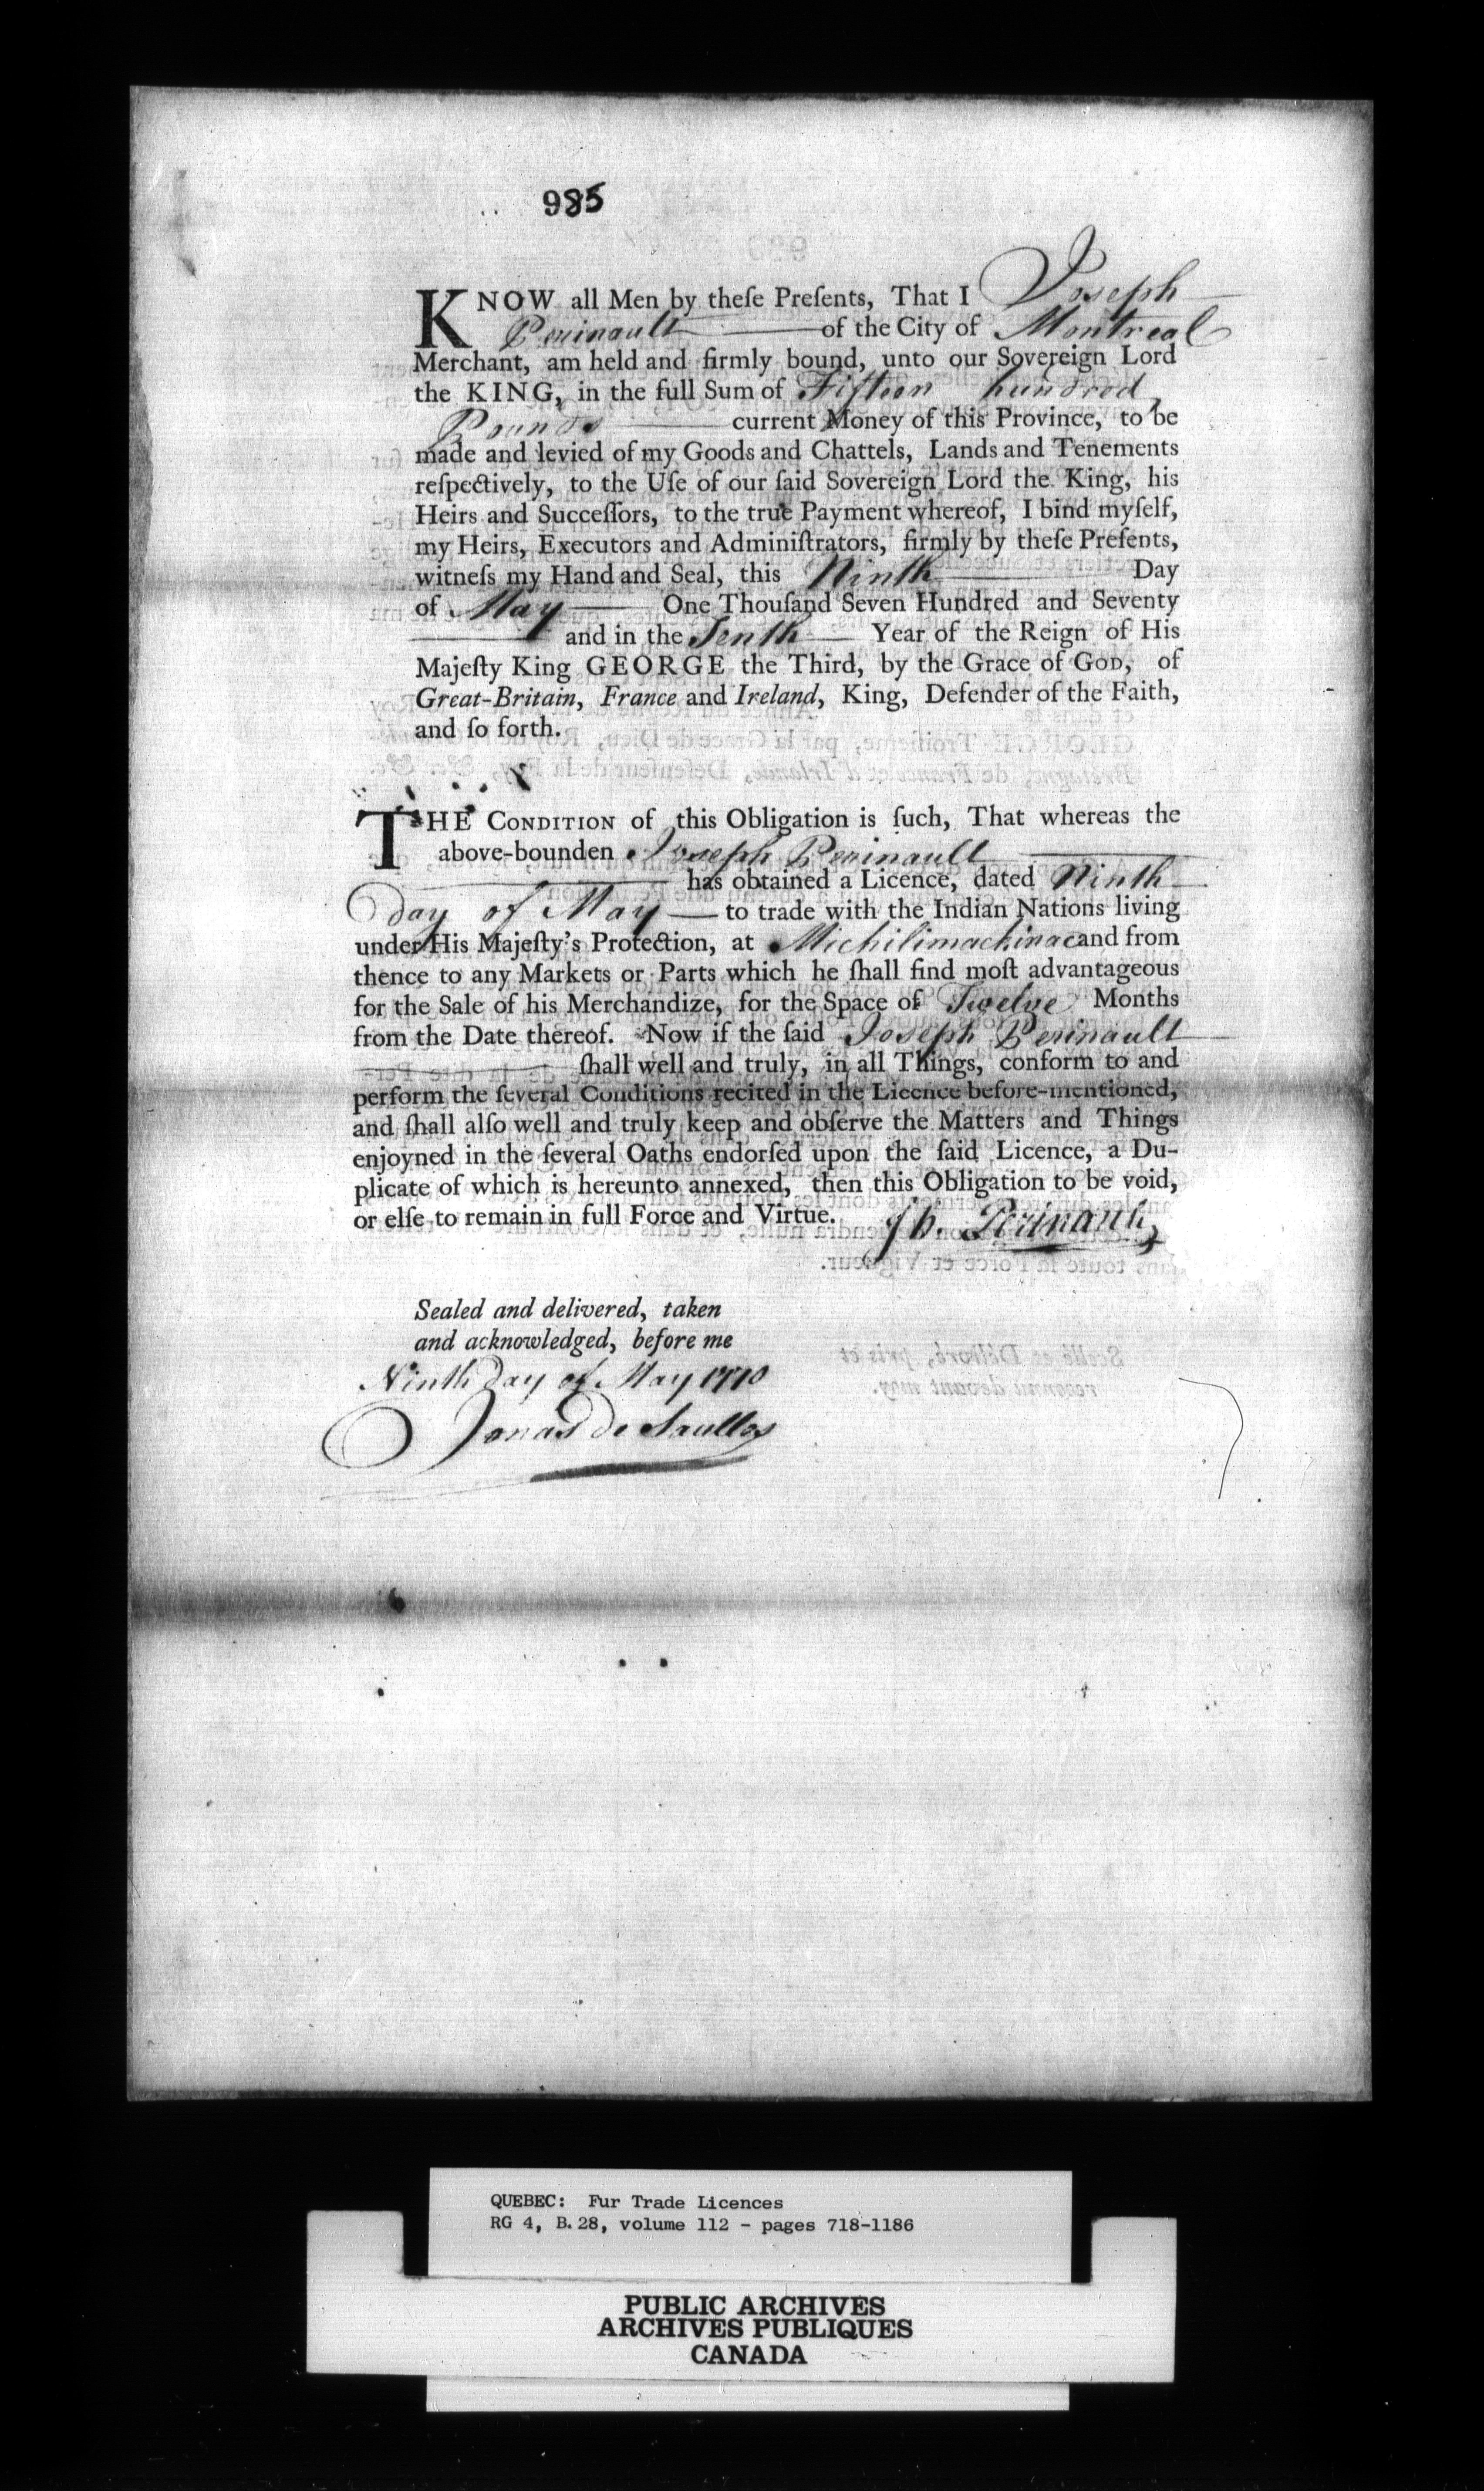 985
KNOW all Men by theſe Preſents, That I Joseph
Perinault of the City of Montreal
Merchant, am held and firmly bound, unto our Sovereign Lord
the KING, in the full Sum of Fifteen hundred
Pounds current Money of this Province, to be
made and levied of my Goods and Chattels, Lands and Tenements
reſpectively, to the Uſe of our ſaid Sovereign Lord the King, his
Heirs and Succeſſors, to the true Payment whereof, I bind myſelf,
my Heirs, Executors and Adminiſtrators, firmly by theſe Preſents,
witneſs my Hand and Seal, this Ninth Day
of May One Thouſand Seven Hundred and Seventy
and in the Tenth Year of the Reign of His
Majeſty King GEORGE the Third, by the Grace of GOD, of
Great-Britain, France and Ireland, King, Defender of the Faith,
and ſo forth.
THE CONDITION of this Obligation is ſuch, That whereas the
above-bounden Joseph Perinault
has obtained a Licence, dated Ninth
day of May to trade with the Indian Nations living
under His Majeſty's Protection, at Michilimackinac and from
thence to any Markets or Parts which he ſhall find moſt advantageous
for the Sale of his Merchandize, for the Space of Twelve Months
from the Date thereof. Now if the ſaid Joseph Perinault
ſhall well and truly, in all Things, conform to and
perform the ſeveral Conditions recited in the Licence before-mentioned,
and ſhall alſo well and truly keep and obſerve the Matters and Things
enjoyned in the ſeveral Oaths endorſed upon the ſaid Licence, a Du-
plicate of which is hereunto annexed, then this Obligation to be void,
or elſe to remain in full Force and Virtue. Jh. Perinault
Sealed and delivered, taken
and acknowledged, before me
Ninth Day of May 1770
Jonas de Saulles
QUEBEC: Fur Trade Licences
RG 4, B.28, volume 112 - pages 718-1186
PUBLIC ARCHIVES
ARCHIVES PUBLIQUES
CANADA